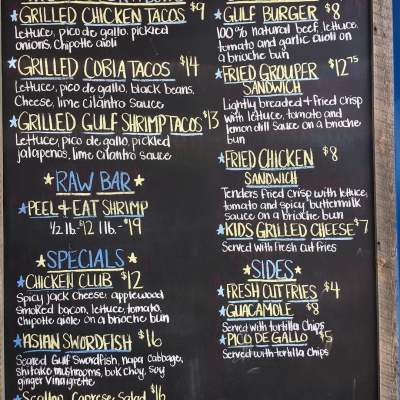 GRILLED CHICKEN TACOS $9
Lettuce, pico de gallo, pickled
onions, Chipotle aioli
GRILLED COBIA TACOS $14
Lettuce, pico de gallo, black beans,
Cheese, lime cilantro sauce
GRILLED GULF SHRIMP TACOS $13
Lettuce, pico de gallo, pickled
jalapenos, lime cilantro sauce
RAW BAR
PEEL & EAT SHRIMP
1/2 lb. $12 1 lb. - $19
SPECIALS
CHICKEN CLUB $12
Spicy jack Cheese, applewood
smoked bacon, lettuce, tomato,
chipotle aioli on a brioche bun
ASIAN SWORDFISH $16
Seared Gulf Swordfish, napa cabbage,
shitake mushrooms, bok choy, soy
ginger vinaigrette
Scallop Caprese Salad $16
GULF BURGER $8
100% natural beef, lettuce,
tomato and garlic aioli on
a brioche bun
FRIED GROUPER $12.75
SANDWICH
Lightly breaded & fried crisp
with lettuce, tomato and
lemon dill sauce on a brioche
bun
FRIED CHICKEN $8
SANDWICH
Tenders fried crisp with lettuce,
tomato and spicy buttermilk
sauce on a brioche bun
KIDS GRILLED CHEESE $7
Served with fresh cut fries
SIDES
FRESH CUT FRIES $4
GUACAMOLE $8
Served with tortilla chips
PICO DE GALLO $5
Served with tortilla chips